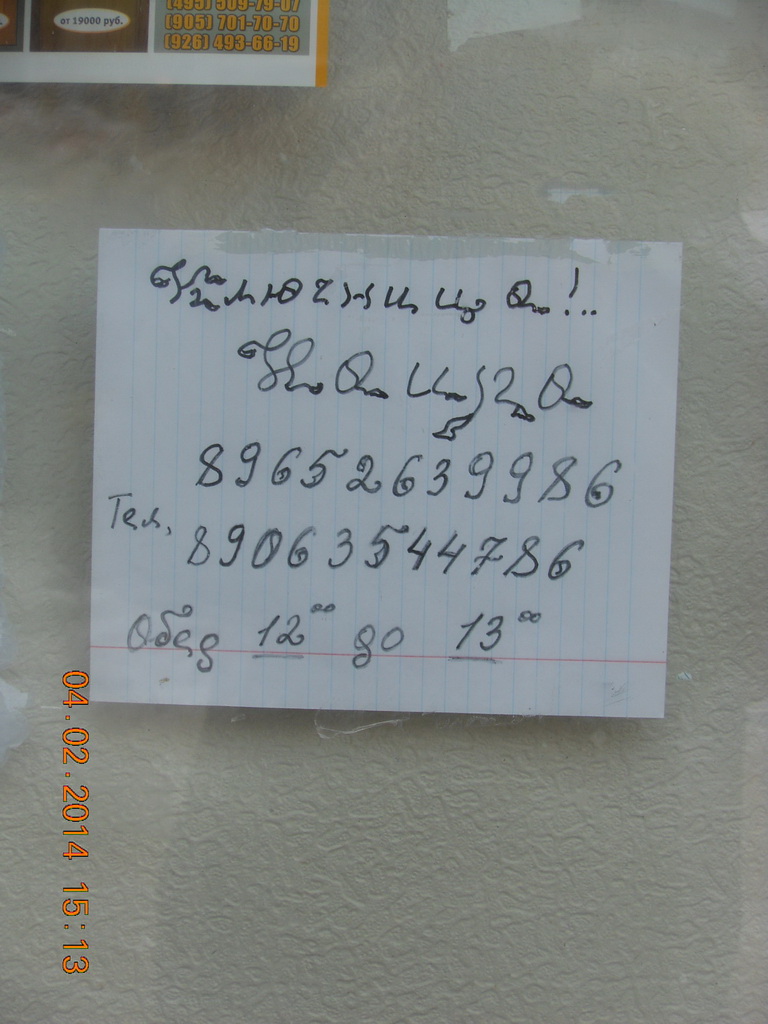 от 19000 руб.
(495) 509-79-07
(905) 701-70-70
(926) 493-66-19
Ключница!..
89652639986
Тел.
89063544786
Обед 12⁰⁰ до 13⁰⁰
04.02.2014 15:13